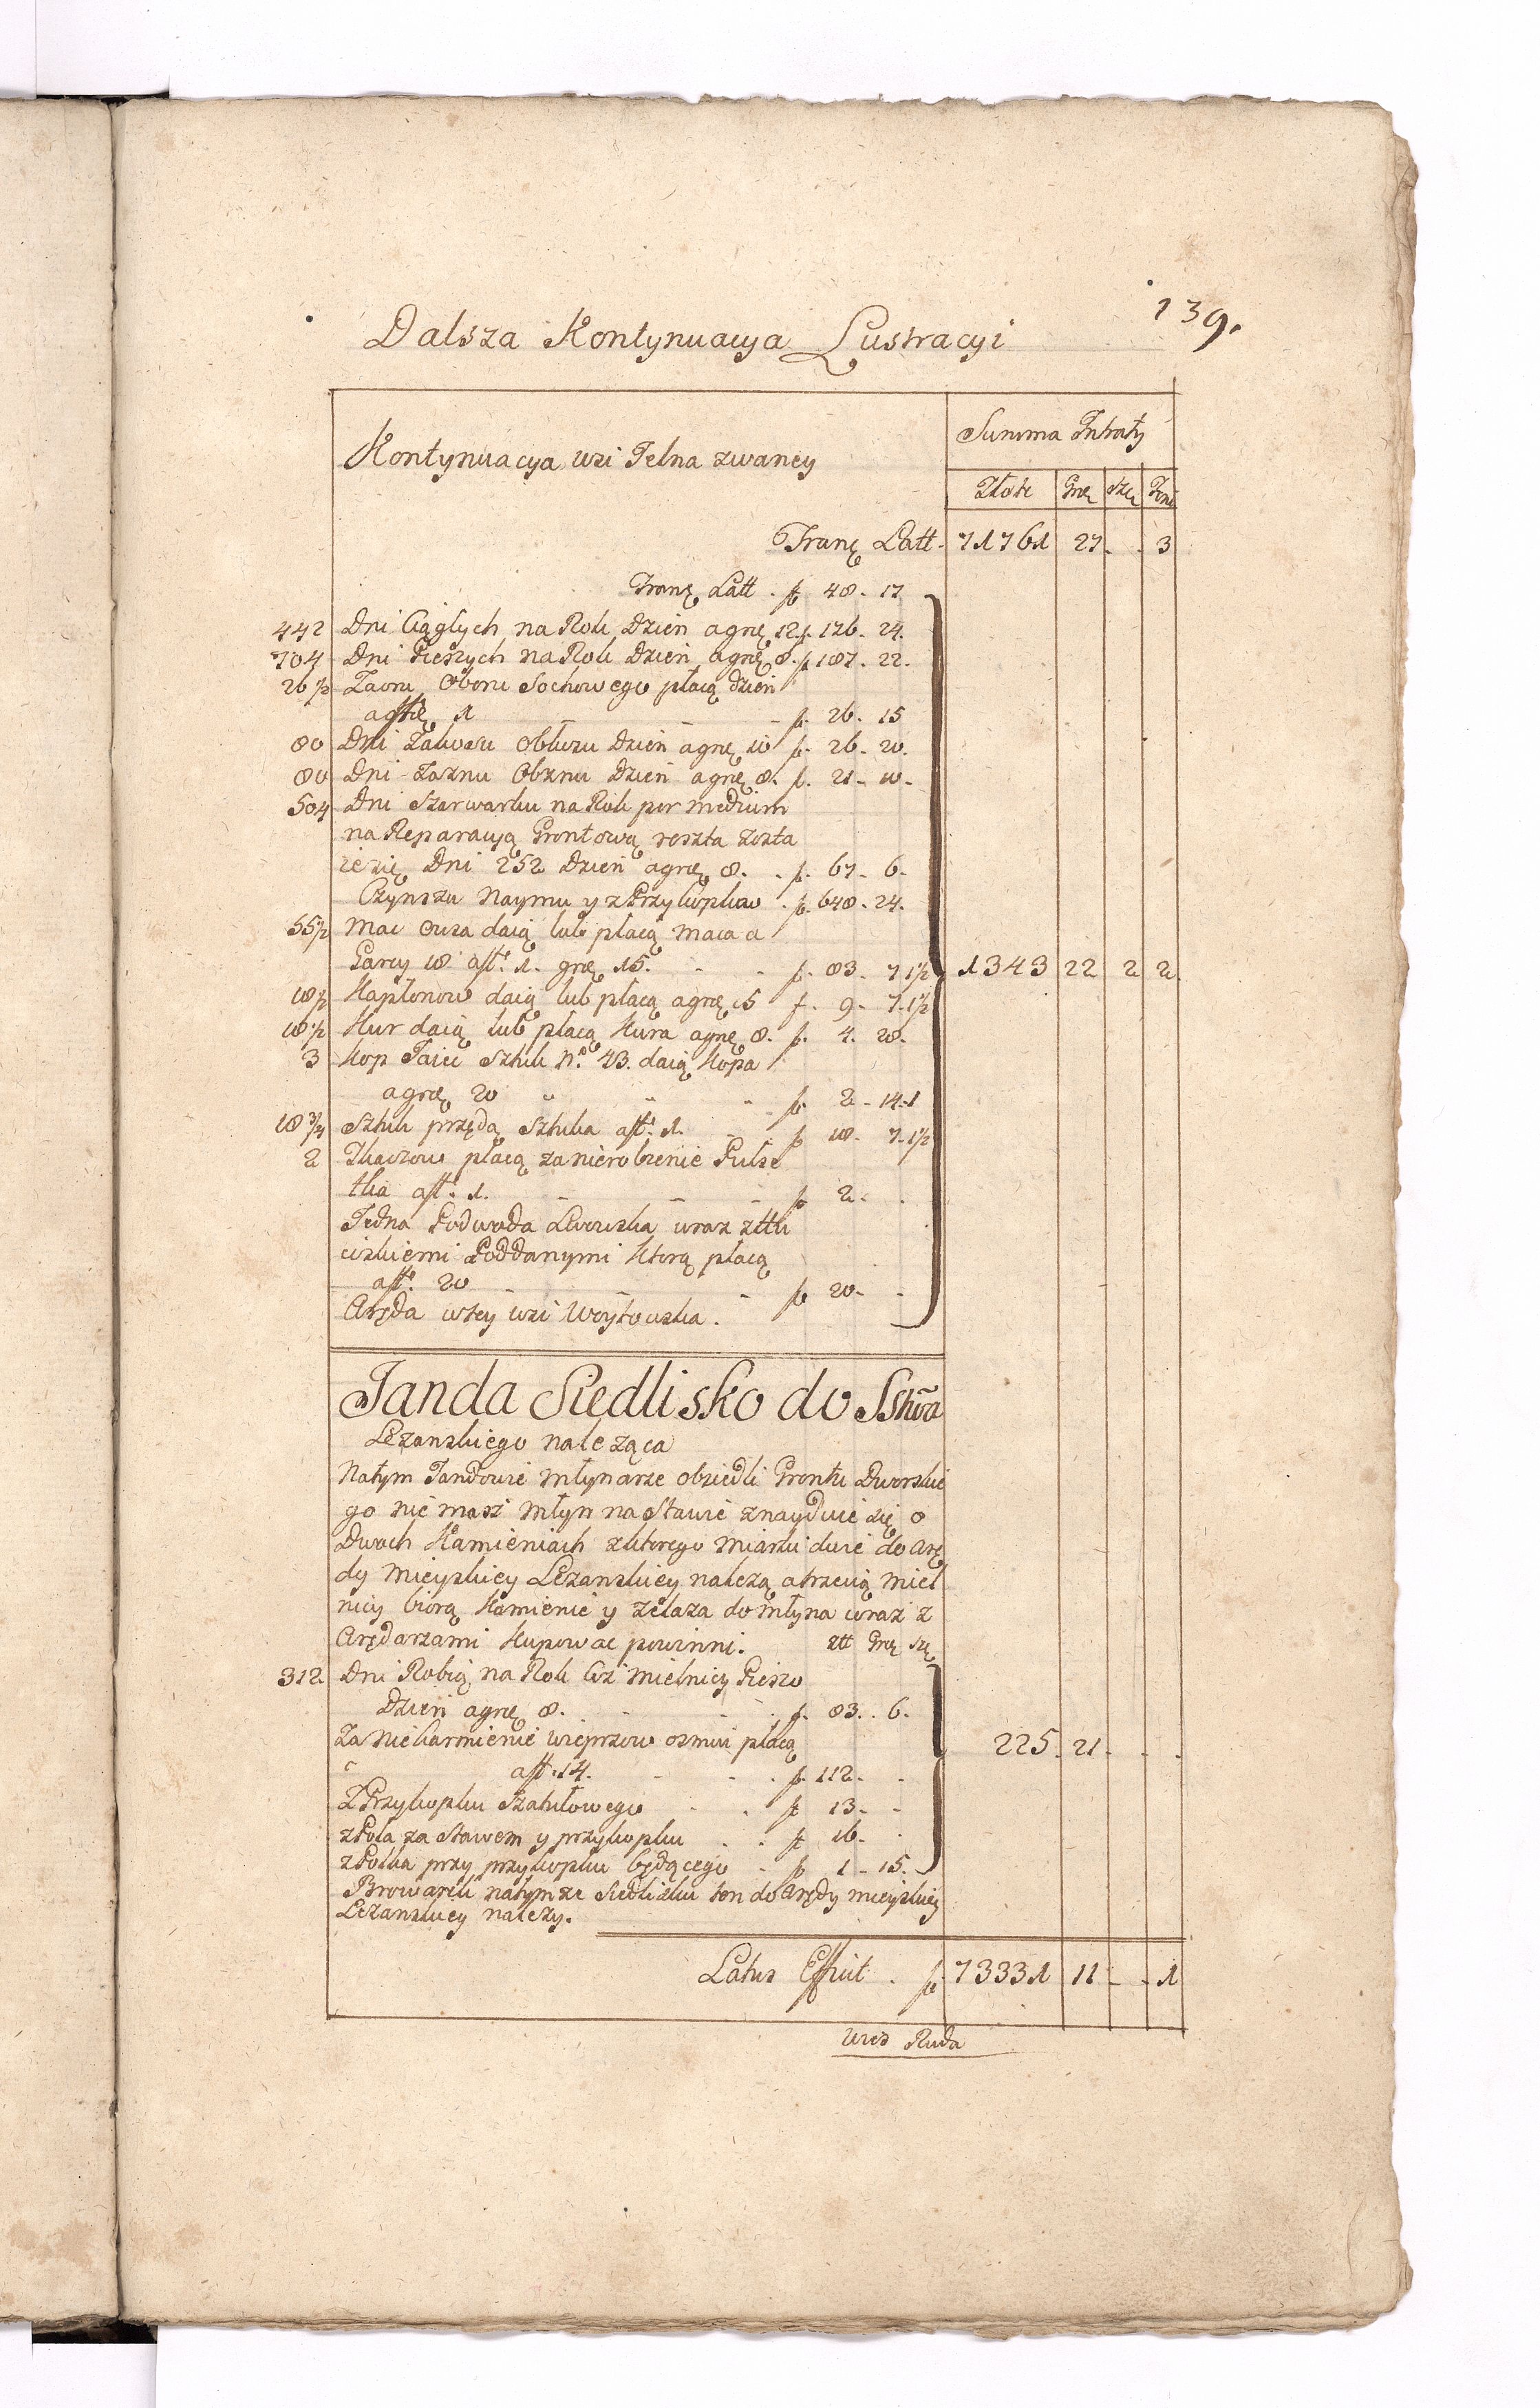 139.
Dalsza Kontynuacya Lustracyi
Kontynuacya wsi Jelna zwaney
Summa Intraty
Złote Grę Szę
Tranę Latt. 71761 27 . . 3
Tranę Latt . f 48 . 17
442 Dni Ciągłych na Rok Dzień agrę 12. f. 176. 24.
704 Dni Pieszych na Rok Dzień agrę 8. f 187. 22.
26 1/2 Płacą dzień
1 f. 26. 15
80 Dni Dzień agrę 10 f. 26. 20.
80 Dni Dzień agrę 8. f. 21. 10.
504 Dni Szarwarku na Rok per medium
na Reparacyą Grontową reszta zosta
ie się Dni 252 Dzień agrę 8. . f. 67. 6.
Czynszu Naymu y z Przykopków . f. 648. 24.
55 1/2 Mac Owsa daią lub płacą Maca a
Garcy 18 afł. 1. grę 15. . . f. 83. 7 1 1/2 1343 22 2 2
18 1/2 Kapłonow daią lub płacą agrę 15 f. 9. 7. 1 1/2
18 1/2 Kur daią lub płacą Kura agrę 8. f. 4. 28.
3 Kop Jaiec Sztuk No. 43. daią Kopa
agrę 20 f. 2. 14. 1
18 3/4 Sztuk przędą Sztuka afł. 1. f 18. 7. 1 1/2
2 Tkaczow płacą za nierobienie Pulse
tka afł. 1. f 2. .
Jedna Podwoda Lwowska wraz z
Poddanymi Ktorą płacą
afł. 20 f 20. .
Aręda w tey wsi Woytowska.
Janda Siedlisko do Sstwa
Leżanskiego należąca
Natym Jandowie Młynarze obsiedli Grontu Dworskie
go nie masz Młyn na Stawie znayduie się o
Dwoch Kamieniach z ktorego Miarki dwie do Arę
dy Mieyskiey Leżanskiey należą a trzecią Miel
nicy biorą Kamienie y żelaza do Młyna wraz z
Arędarzami Kupować powinni. Złł Grę Szę
312. Dni Robią na Rok Ci Mielnicy Pieszo
Dzień agrę 8. . f. 83. . 6.
Za Niekarmienie wieprzow osmiu płacą 225. 21. . .
afł. 14. . f. 112. .
Z Przykopku Szatułowego . . f 13. .
z Pola za Stawem y przykopku . . f 16. .
z Polka przy przykopku będącego . f 1. 15.
Browarek natymże Siedlisku ten do Arędy mieyskiey
Leżanskiey należy.
Latus Efficit . f. 73331 11 . . 1
Wies Ruda